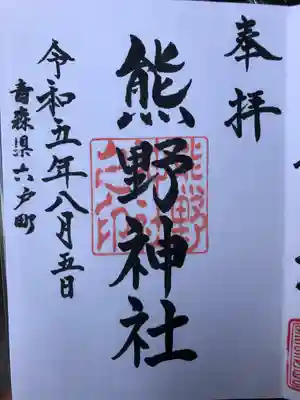 奉拝
熊野神社
熊野神社之印
令和五年八月五日
青森県六戸町